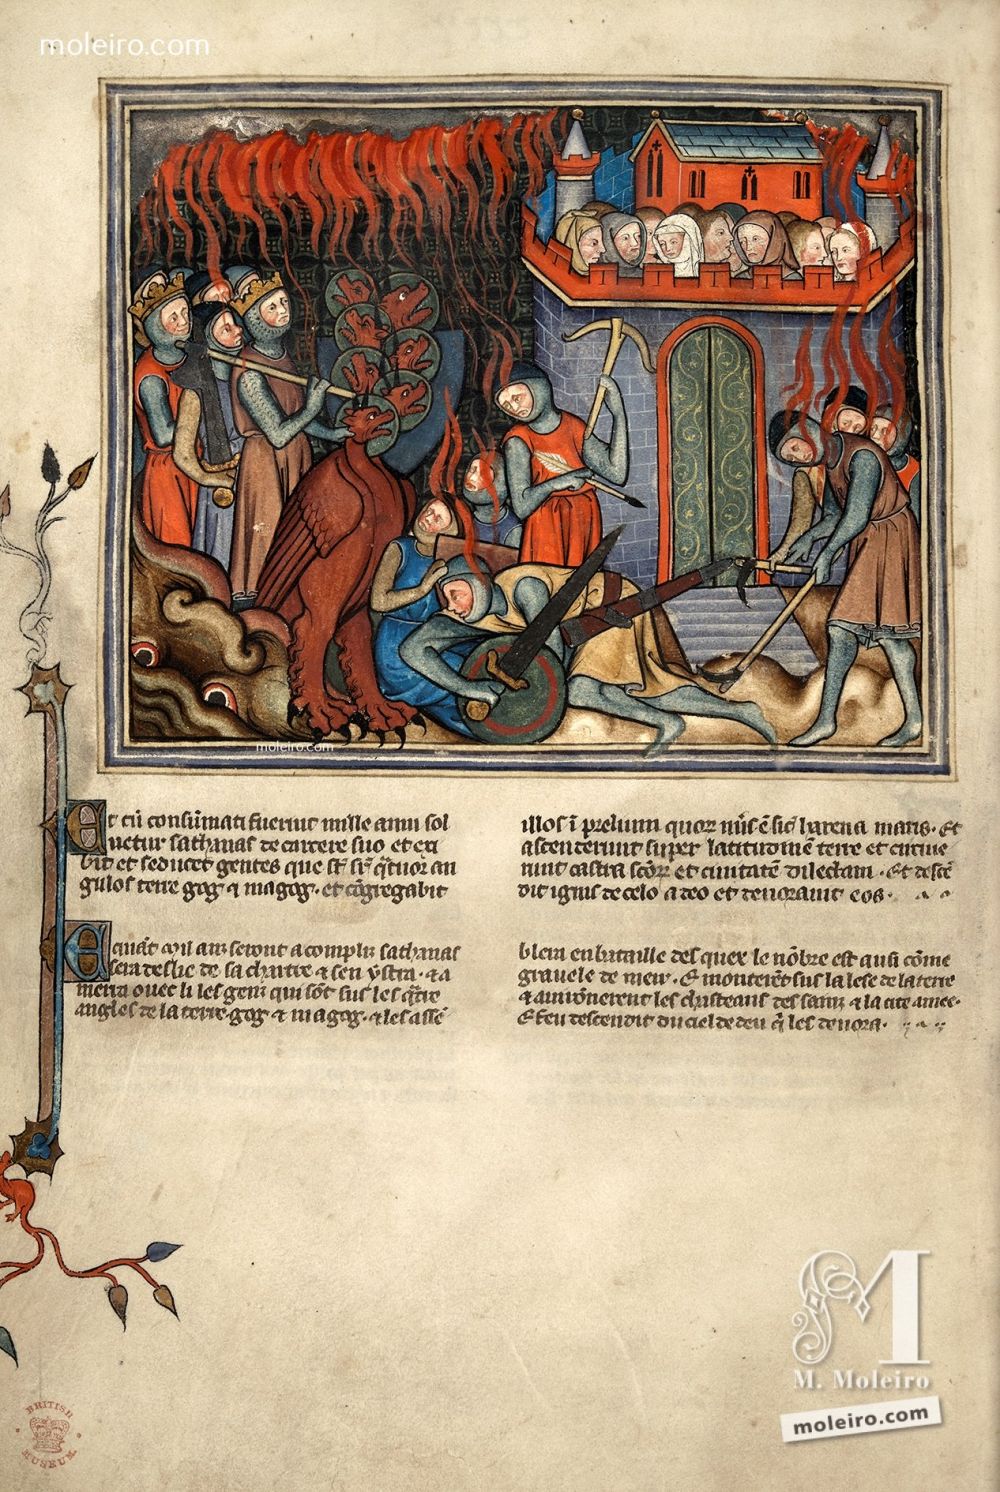 moleiro.com
moleiro.com
Et cū consūmati fuerint mille anni sol
uetur sathanas de carcere suo et exi
bit et seducet gentes que st̄ sr̄ qͣtuor an
gulos terre gog ⁊ magog. et cōgregabit
illos ī prelium quoꝝ nūs ē sic harena maris. Et
ascenderunt super latitudinem terre et circuie
runt castra scōꝝ et ciuitatē dilectam. Et descē
dit ignis de celo a deo et deuorauit eos.
E quāt mil anz seront acompliz sathanas
sera deslie de sa chartre ⁊ sen ystra. ⁊ a
menra ouec li les genz qui sōt sus les qͣtre
angles de la terre. gog ⁊ magog. ⁊ les assē
blera en bataille des quex le nōbre est ausi cōme
grauele de mer. Et monterēt sus la lese de la terre
⁊ auironerent les chasteaus des sainz ⁊ la cite amee.
Et feu descendit du ciel de deu qͥ les deuora.
M
M. Moleiro
moleiro.com
BRITISH
MUSEUM